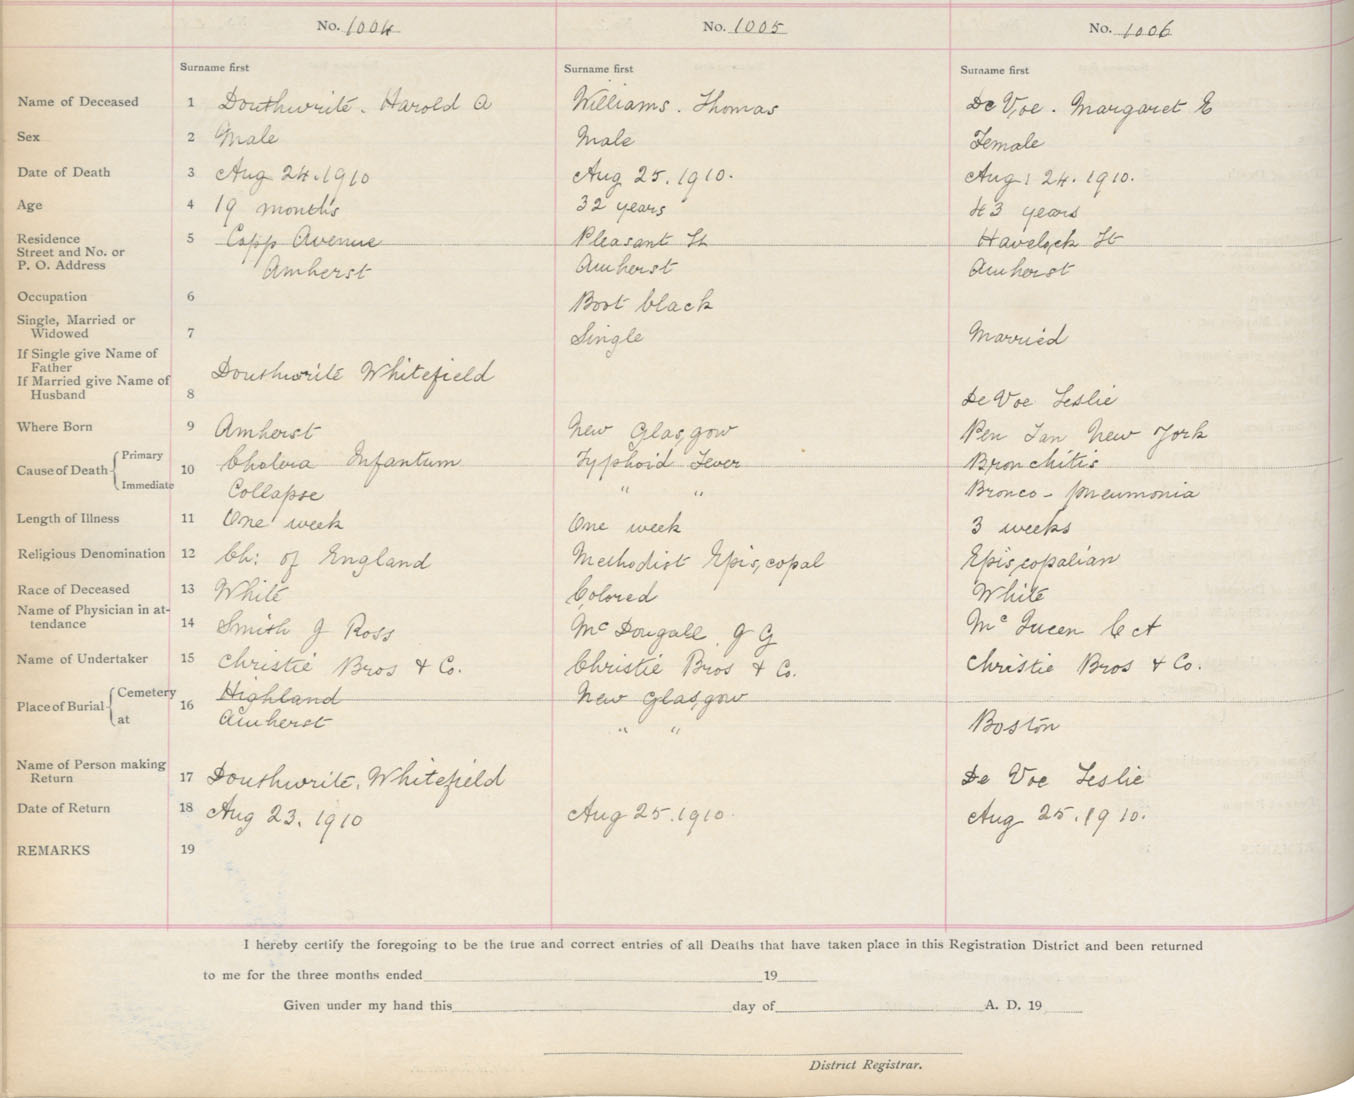 No. 1004 No. 1005 No. 1006
Surname first Surname first Surname first
Name of Deceased 1 Douthwrite. Harold A Williams. Thomas De Voe. Margaret E
Sex 2 Male Male Female
Date of Death 3 Aug 24. 1910 Aug 25. 1910. Aug. 24. 1910.
Age 4 19 months 32 years 43 years
Residence 5 Copp Avenue Pleasant St Havelock St
Street and No. or
P. O. Address Amherst Amherst Amherst
Occupation 6 Boot black
Single, Married or
Widowed 7 Single Married
If Single give Name of
Father Douthwrite Whitefield
If Married give Name of
Husband 8 De Voe Leslie
Where Born 9 Amherst New Glasgow Pen Ian New York
Cause of Death Primary 10 Cholera Infantum Typhoid Fever Bronchitis
Immediate Collapse " " Bronco - pneumonia
Length of Illness 11 One week One week 3 weeks
Religious Denomination 12 Ch: of England Methodist Episcopal Episcopalian
Race of Deceased 13 White Colored White
Name of Physician in at-
tendance 14 Smith J Ross McDougall. J G Mc Queen C A
Name of Undertaker 15 Christie Bros & Co. Christie Bros & Co. Christie Bros & Co.
Place of Burial Cemetery 16 Highland New Glasgow
at Amherst " " Boston
Name of Person making
Return 17 Douthwrite, Whitefield De Voe Leslie
Date of Return 18 Aug 23. 1910 Aug 25. 1910. Aug 25. 1910.
REMARKS 19
I hereby certify the foregoing to be the true and correct entries of all Deaths that have taken place in this Registration District and been returned
to me for the three months ended 19
Given under my hand this day of A. D. 19
District Registrar.